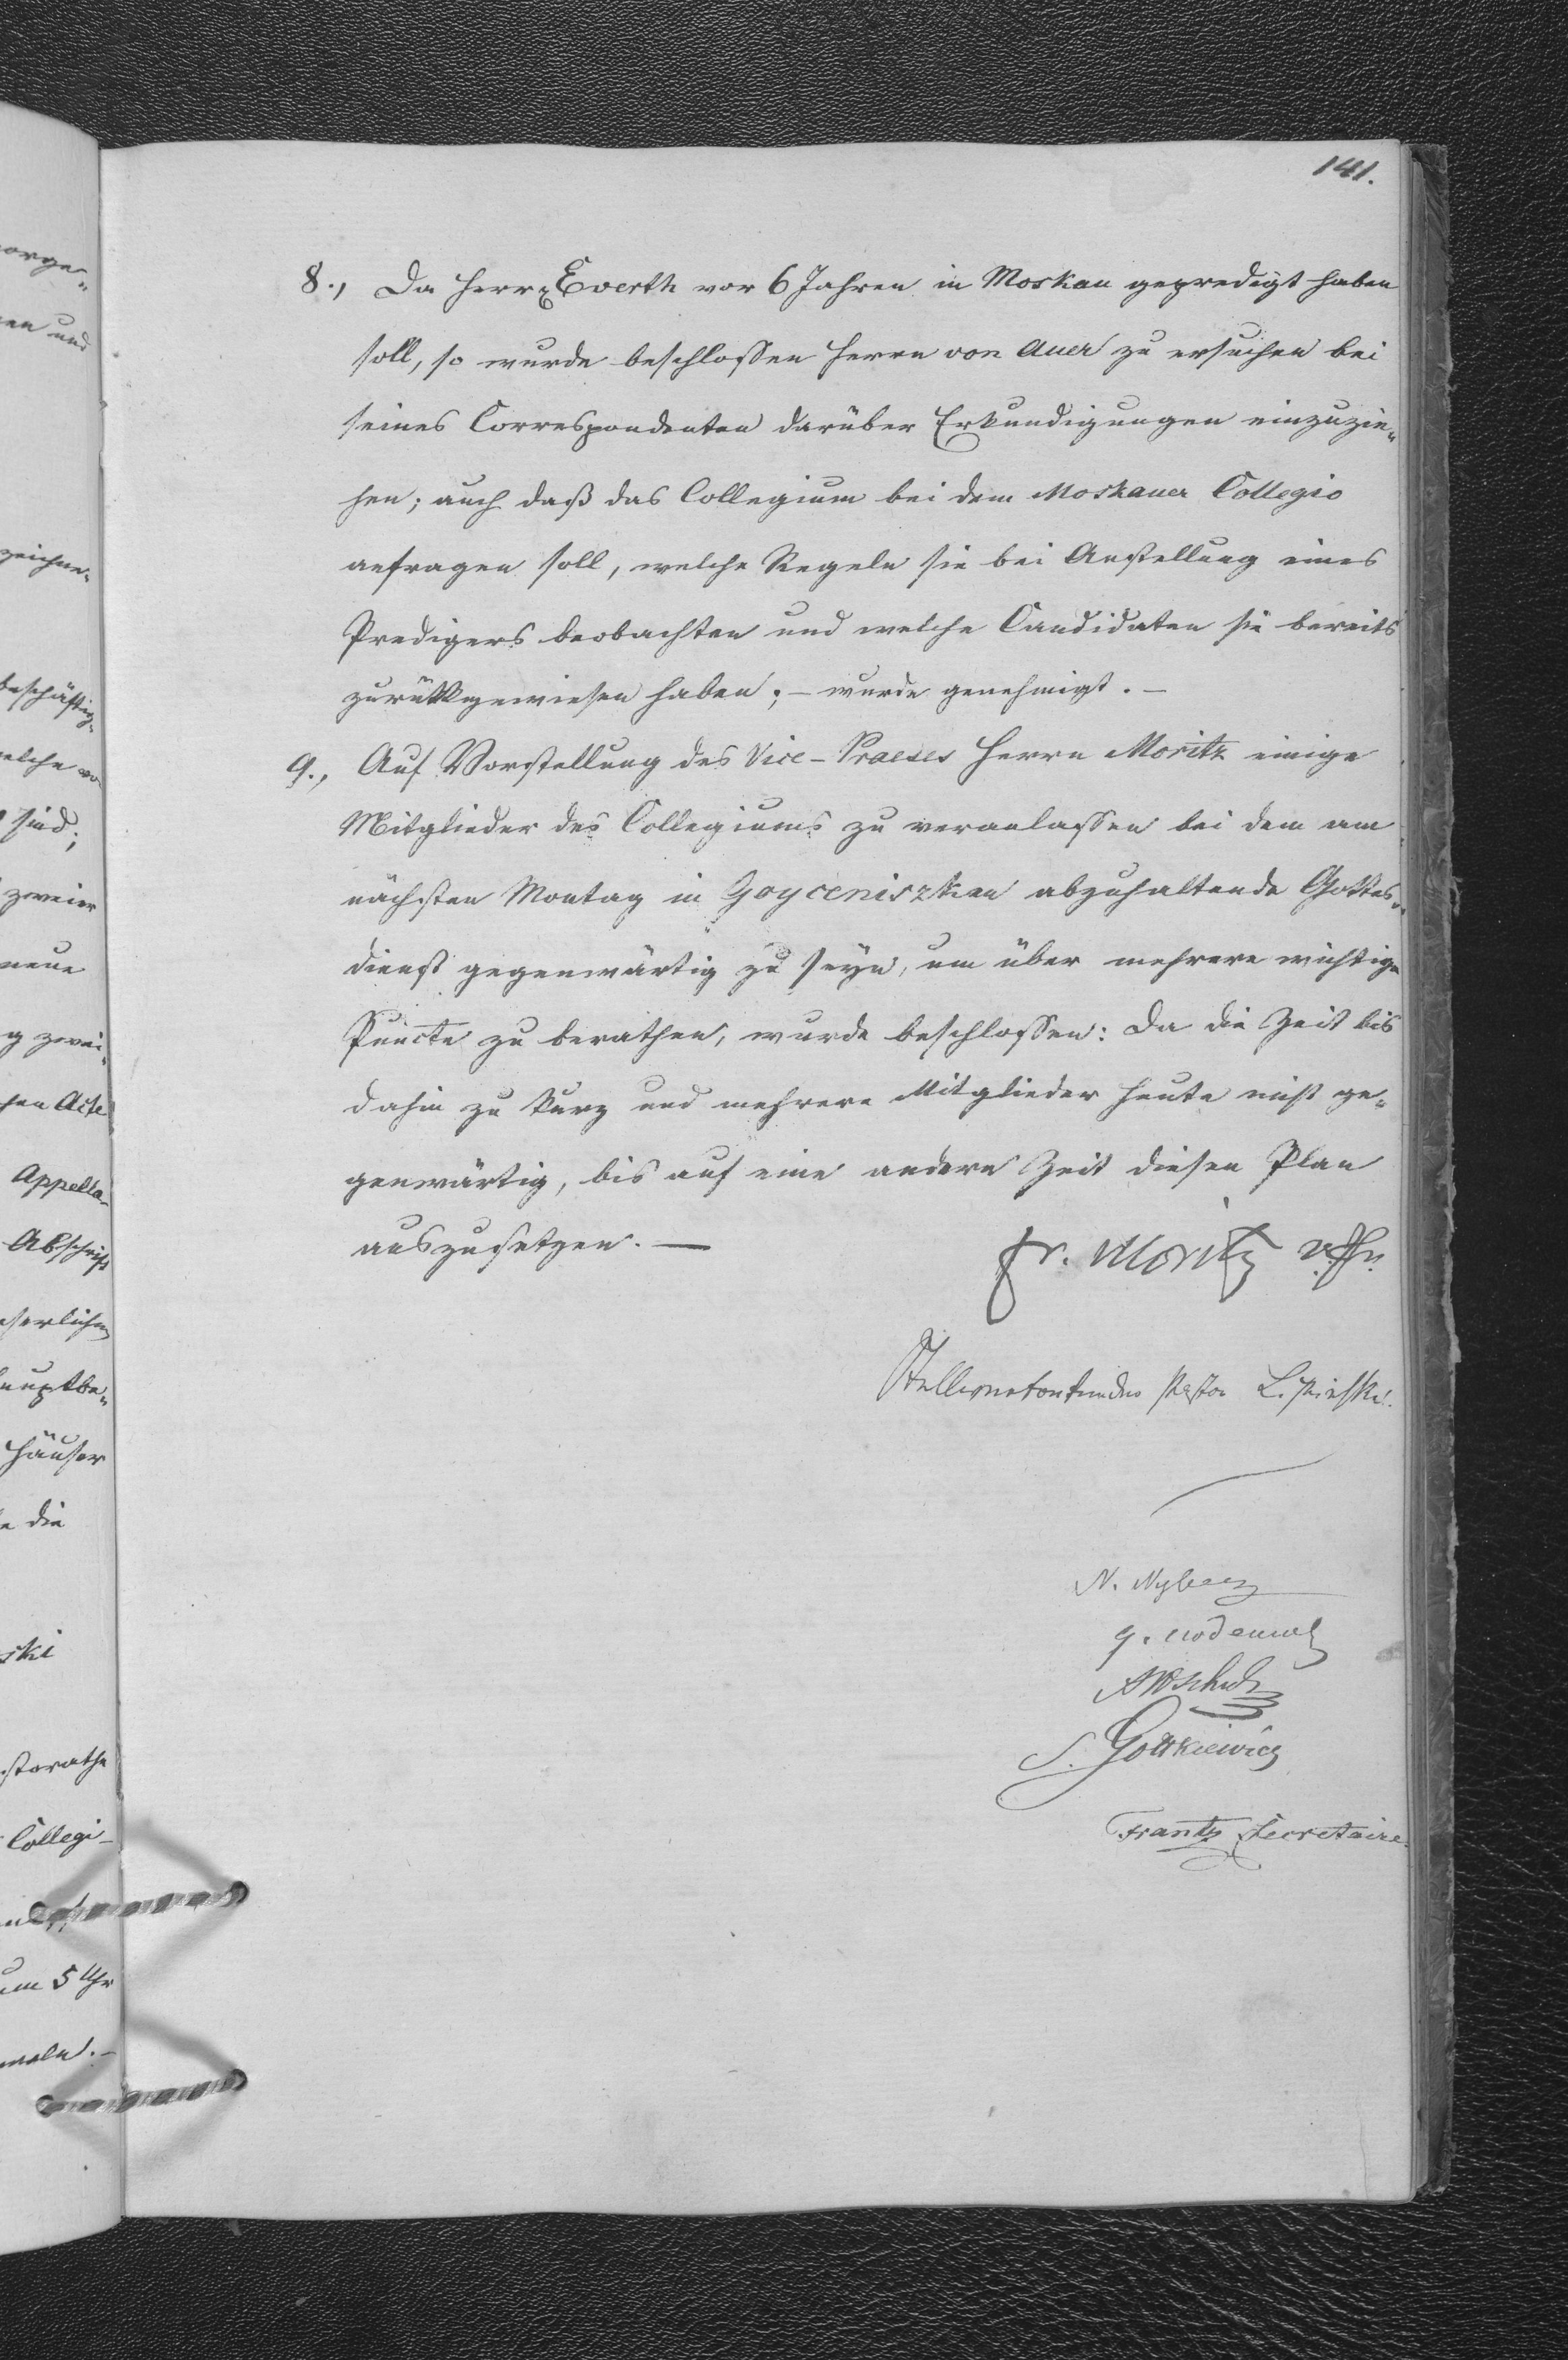 141.
8., Da Herr Everth vor 6 Jahren in Moskau gepredigt haben
soll, so wurde beschlossen Herrn von Auer zu ersuchen bei
seines Correspondenten darüber Erkundigungen einzuzie„
hen; auch daß das Collegium bei dem Moskauer Collegio
anfragen soll, welche Regeln sie bei Anstellung eines
Predigers beobachten und welche Candidaten sie bereits
zurükkgewiesen haben; – wurde genehmigt. –
9., Auf Vorstellung des Vice-Praeses Herrn Moritz einige
Mitglieder des Collegiums zu veranlassen bei dem am
nächsten Montag in Goyceniszken abzuhaltende Gottes„
dienst gegenwärtig zu seyn, um über mehrere wichtige
Puncte zu berathen, wurde beschlossen: Da die Zeit bis
dahin zu kurz und mehrere Mitglieder heute nicht ge„
genwärtig, bis auf eine andere Zeit diesen Plan
auszusetzen. —
Fr. Moritz
Pastor
N. Nyberg
S. Gottkiewicz
Frantz Secretaire.
orge„
en und
zeichne„
beschäftig„
elche
sind;
zweier
neue
g zwei„
hen Acte
Appella-
Abschrift
auptbe„
Häuser
die
ski
Collegi-
um 5 Uhr